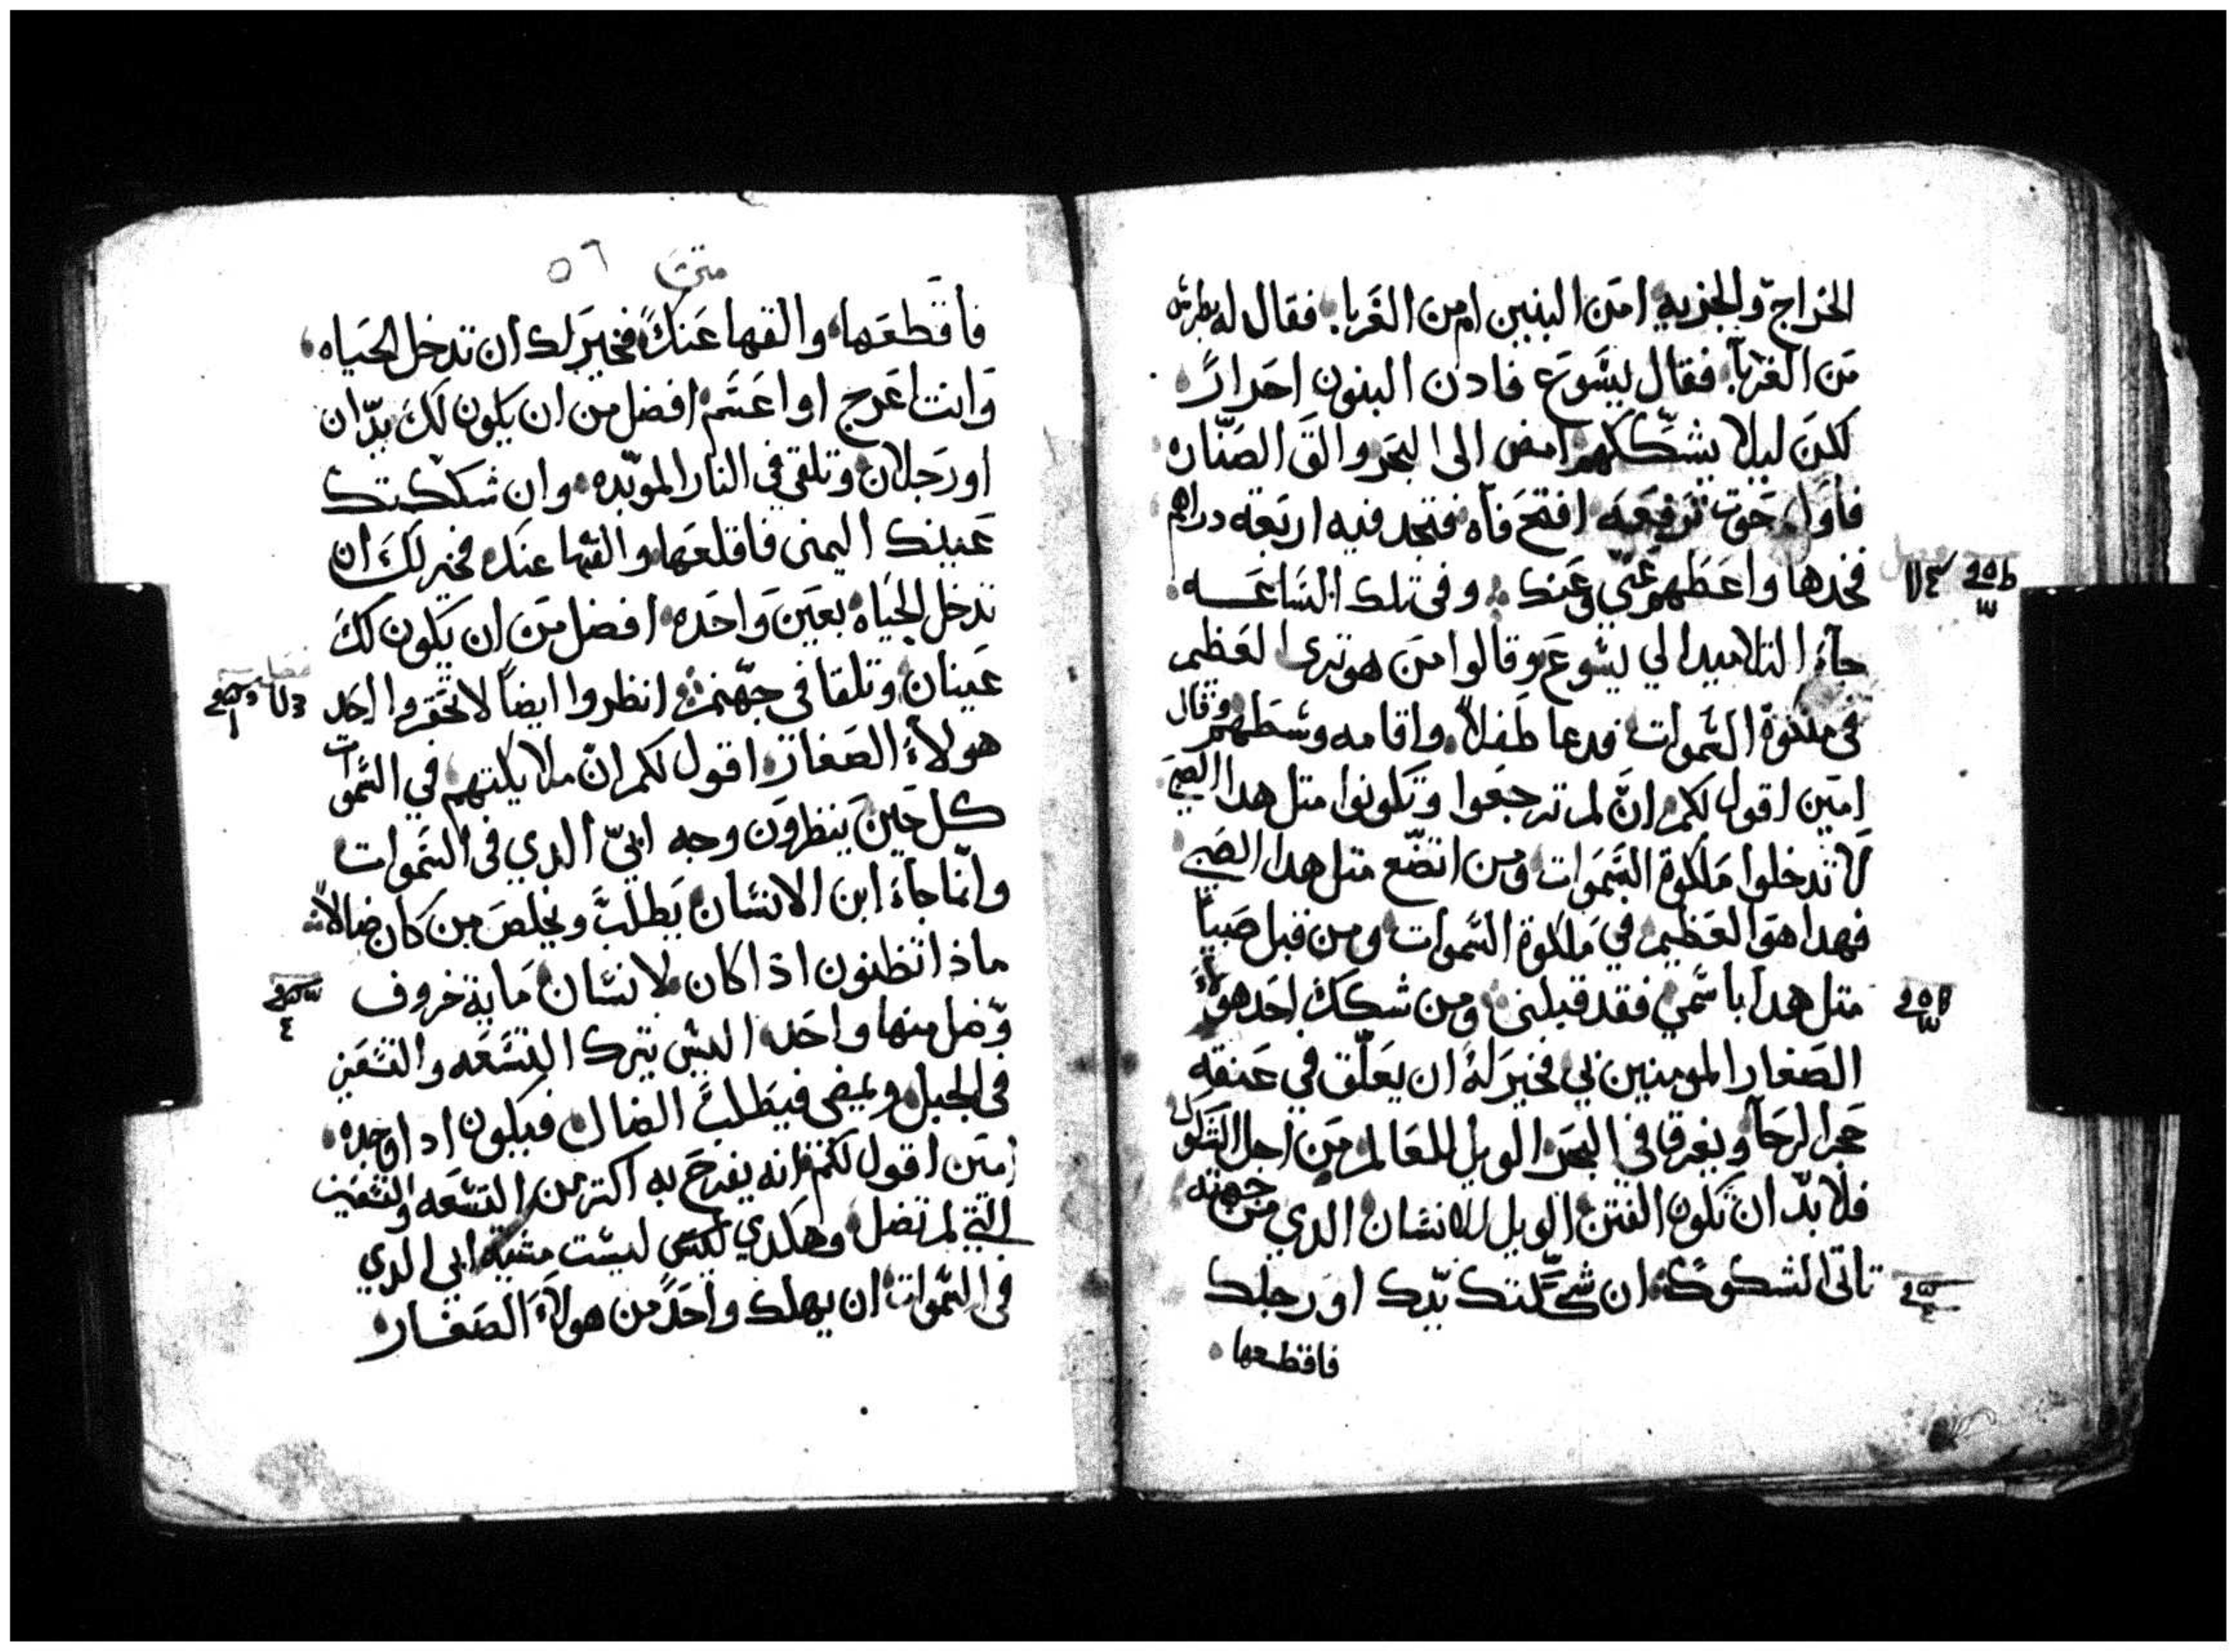 الخراج والجزيه امن البنين ام من الغربا فقال له بطرس
من الغربآ فقال يسوع فادن البنون احرارً
لكن ليلا يشككهم امض الى البحر والق الصناره
فاول حوت ترفعه افتح فاه فتجد فيه اربعة دراهم
فخدها واعطهم عني وعنك وفي تلك الساعه
جآء التلاميد الي يسوع وقالوا من هو ترى العظيم
في ملكوة السموات فدعا طفلاً واقامه وسطهم وقال
امين اقول لكم ان لم ترجعوا وتكونوا متل هدا الصبي
لا تدخلوا ملكوة السموات ومن اتضع متل هدا الصبي
فهدا هو العظيم في ملكوة السموات ومن قبل صبياً
متل هدا باسمي فقد قبلني ومن شكك احد هولاء
الصغار المومنين بي فخير له ان يعلق في عنقه
حجر الرحآ ويغرق في البحر الويل للعالم من اجل الشكوك
فلا بد ان تكون الفتن الويل للانسان الدي من جهته
تاتى الشكوك ان شككتك يدك او رجلك
فاقطعها
متى ٥٦
فاقطعها والقها عنك فخير لك ان تدخل الحياه
وانت اعرج او اعسم افضل من ان يكون لك يدان
او رجلان وتلقي في النار الموبده وان شككتك
عينك اليمنى فاقلعها والقها عنك فخير لك ان
تدخل الحياه بعين واحده افضل من ان يكون لك
عينان وتلقا في جهنم انظروا ايضاً لا تحقروا احد
هولاءِ الصغار اقول لكم ان ملايكتهم في السموات
كل حين ينظرون وجه ابي الدي في السموات
وانما جاء ابن الانسان يطلب ويخلص من كان ضالاً
ماذا تظنون اذا كان لانسان ماية خروف
وضل منها واحد اليس يترك التسعه والتسعين
في الجبل ويمضى فيطلب الضال فيكون ادا وجده
امين اقول لكم انه يفرح به اكتر من التسعه والتسعين
التي لم تضل وهكدي ليس ليست مشية ابي الدي
في السموات ان يهلك واحد من هولاء الصغار